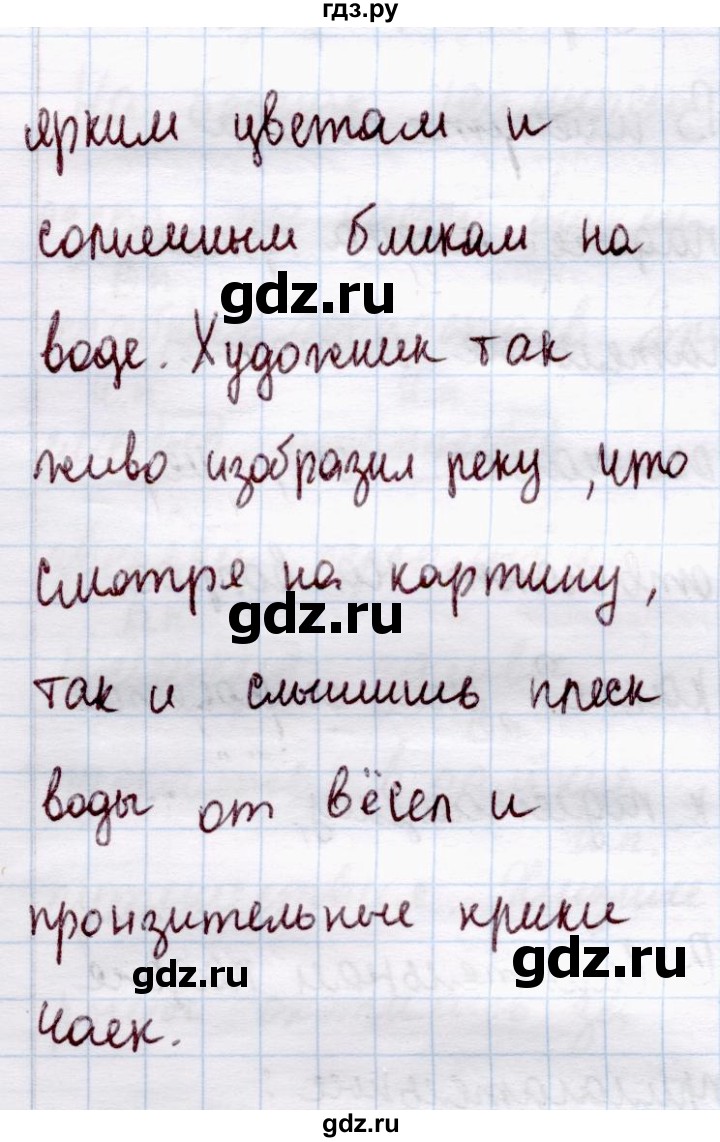 гдз.ру
ярким цветам и
солнечным бликам на
gdz.ru
воде. Художник так
живо изобразил реку, что
смотря на картину,
gdz.ru
так и слышишь плеск
воды от вёсел и
пронзительные крики
gdz.ru
gdz.ru
чаек.
gdz.ru